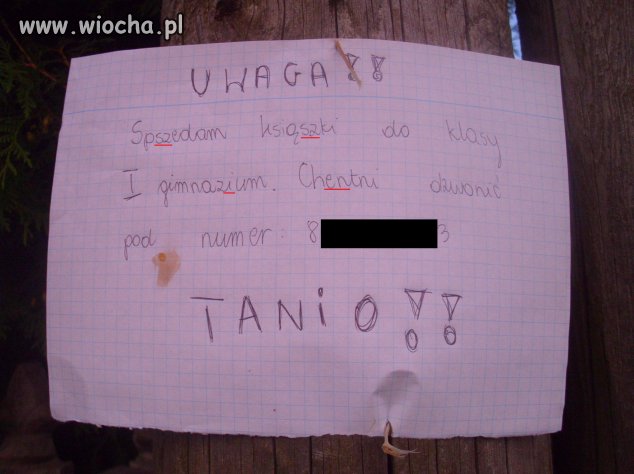 www.wiocha.pl
UWAGA!!
Spszedam książski do klasy
I gimnazium. Chentni dzwonić
pod numer: 8 3
TANiO!!